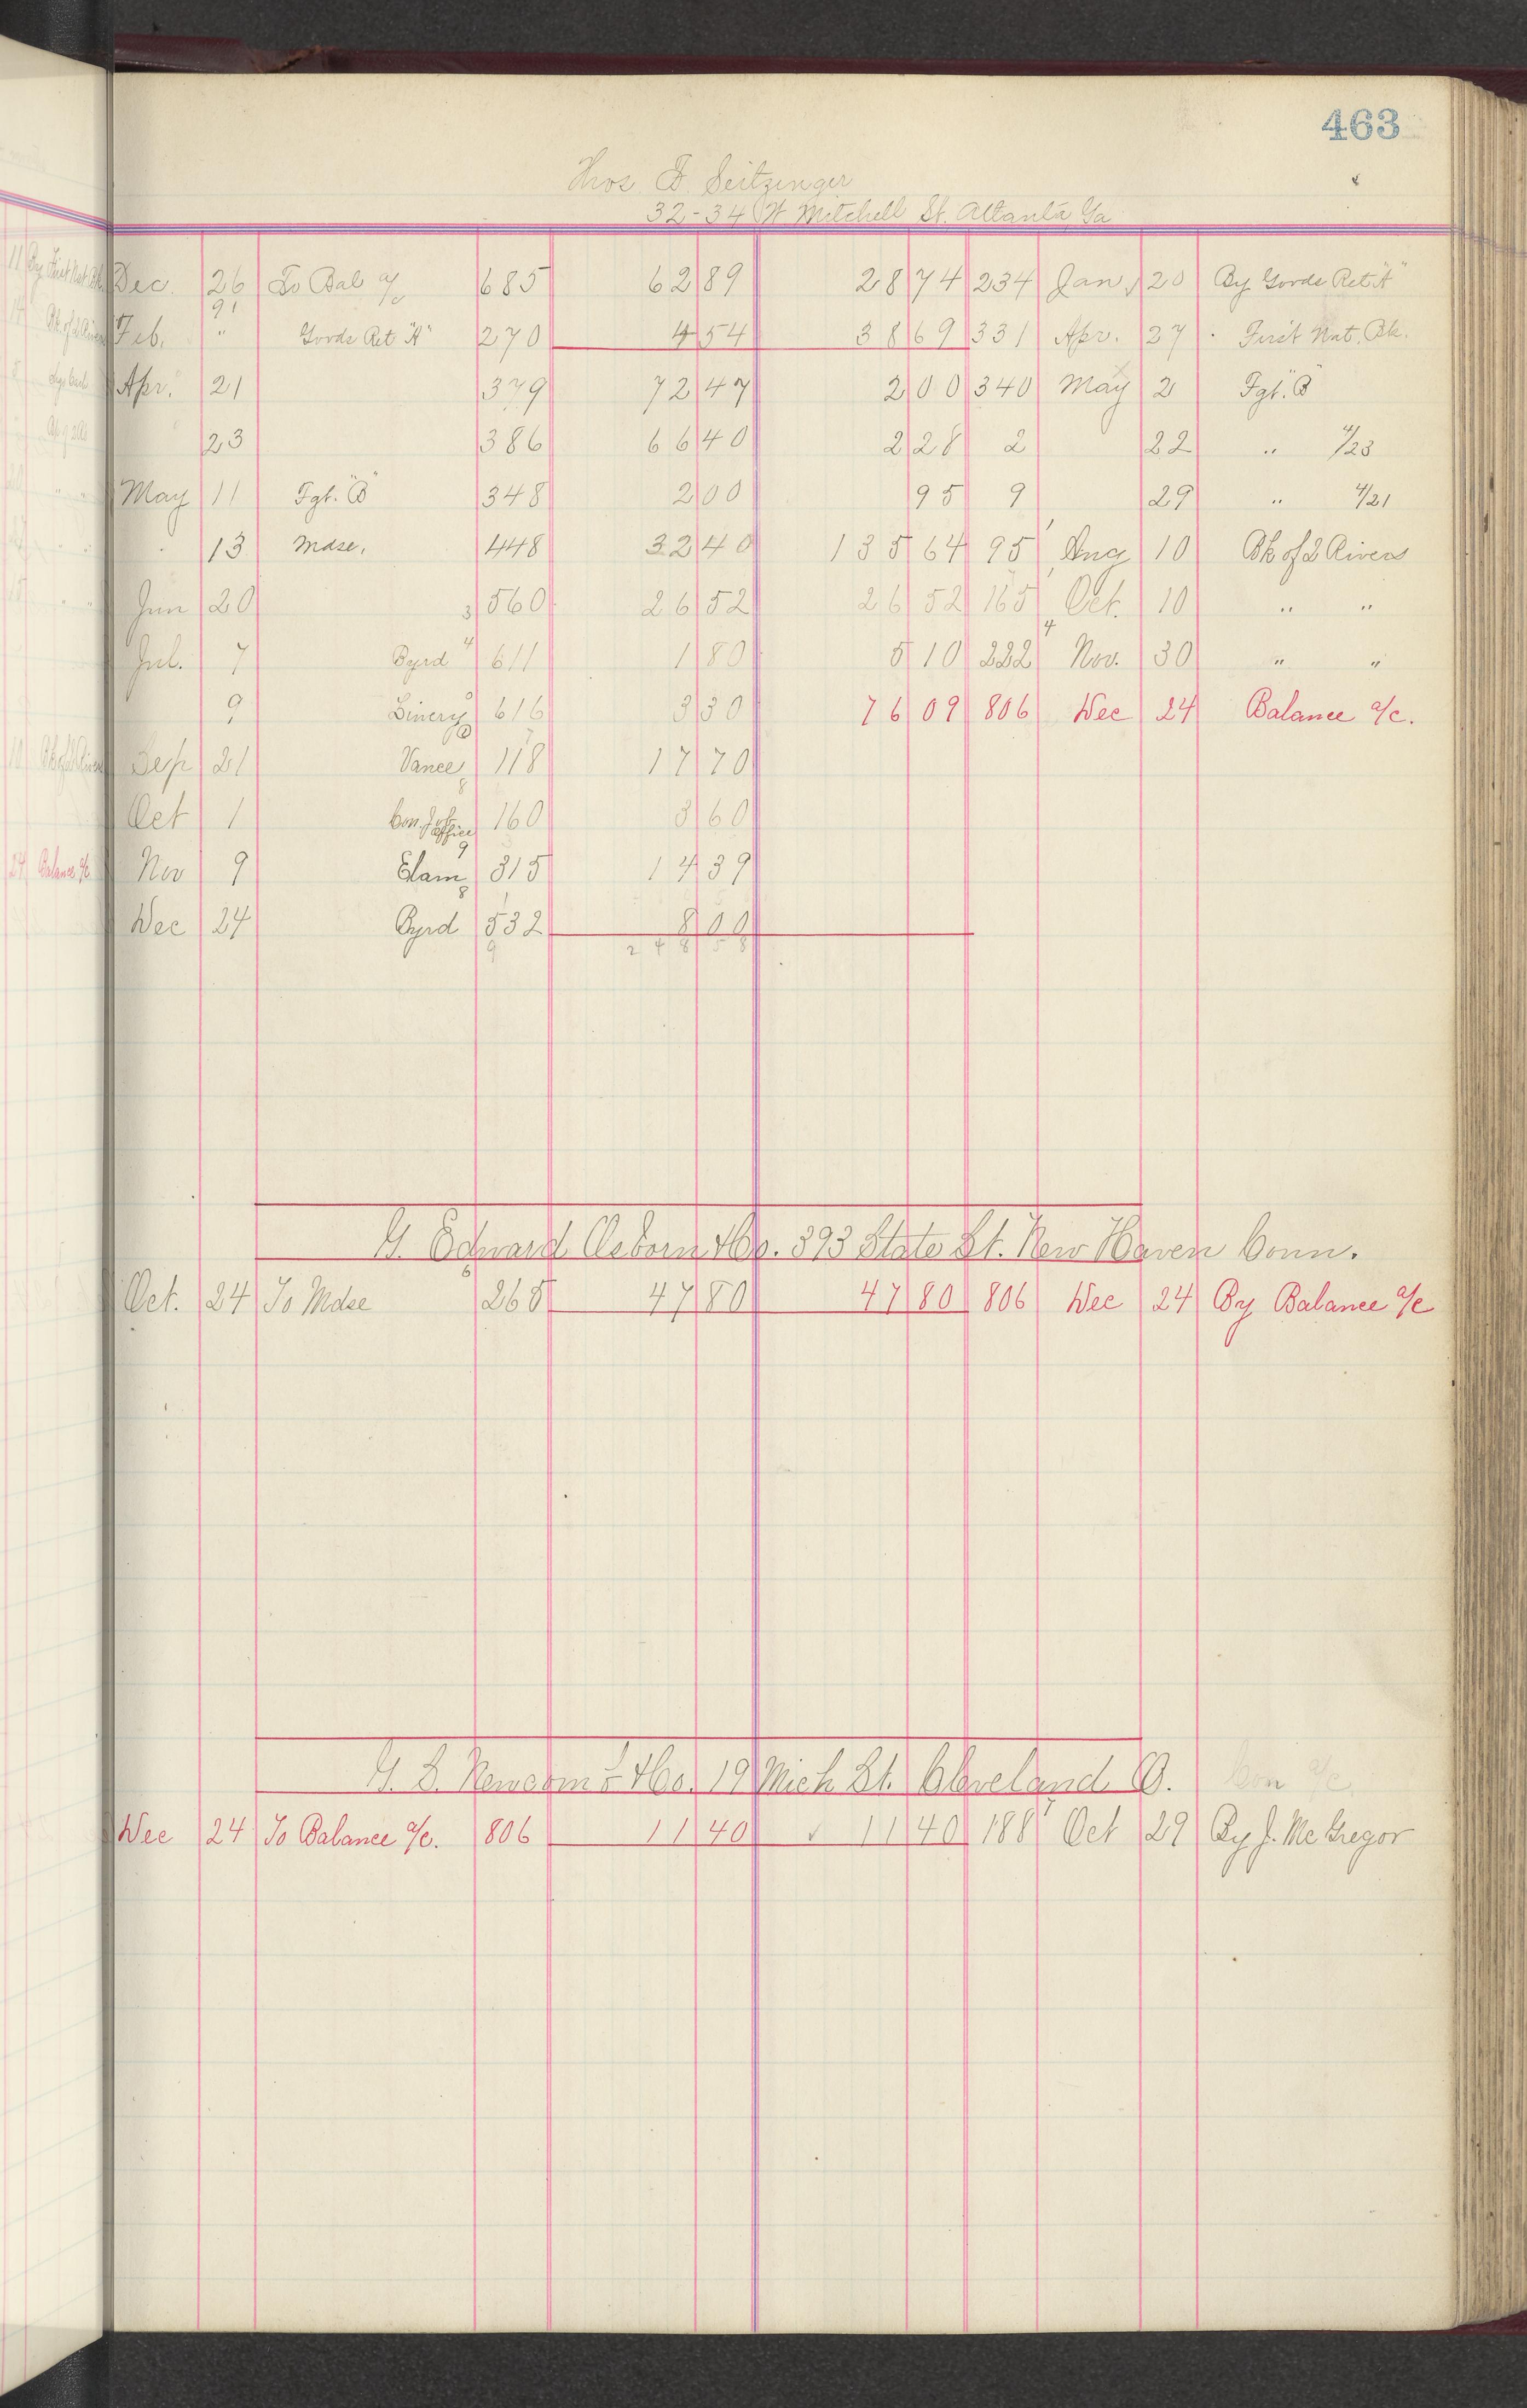 463
Thos F. Seitzinger
32-34 W Mitchell St. Atlanta, Ga
Dec. 26 To Bal a/c 685 62 89 28 74 234 Jan 20 By Goods Ret "A"
Feb. " Goods Ret "A" 270 4 54 38 69 331 Apr. 27 First Nat. Bk.
Apr. 21 379 72 47 2 00 340 May 2 Fgt. "B"
23 386 66 40 2 28 2 22 " 4/23
May 11 Fgt. "B" 348 2 00 95 9 29 " 4/21
13 Mdse. 448 32 40 135 64 95 Aug 10 Bk of 2 Rivers
Jun 20 560 26 52 26 52 165 Oct. 10 " "
Jul. 7 Byrd 611 1 80 5 10 222 Nov. 30 " "
9 616 3 30 76 09 806 Dec 24 Balance a/c.
Sep 21 Vance 118 17 70
Oct 1 Office 160 3 60
Nov 9 Elam 315 14 39
Dec 24 Byrd 532 8 00
2 4 8 5 8
G. Edward Osborn & Co. 393 State St. New Haven Conn.
Oct. 24 To Mdse 265 47 80 47 80 806 Dec 24 By Balance a/c
G. S. Newcom & Co. 19 Mich St. Cleveland O. Con a/c
Dec 24 To Balance a/c. 806 11 40 ✓ 11 40 188 Oct 29 By J. McGregor